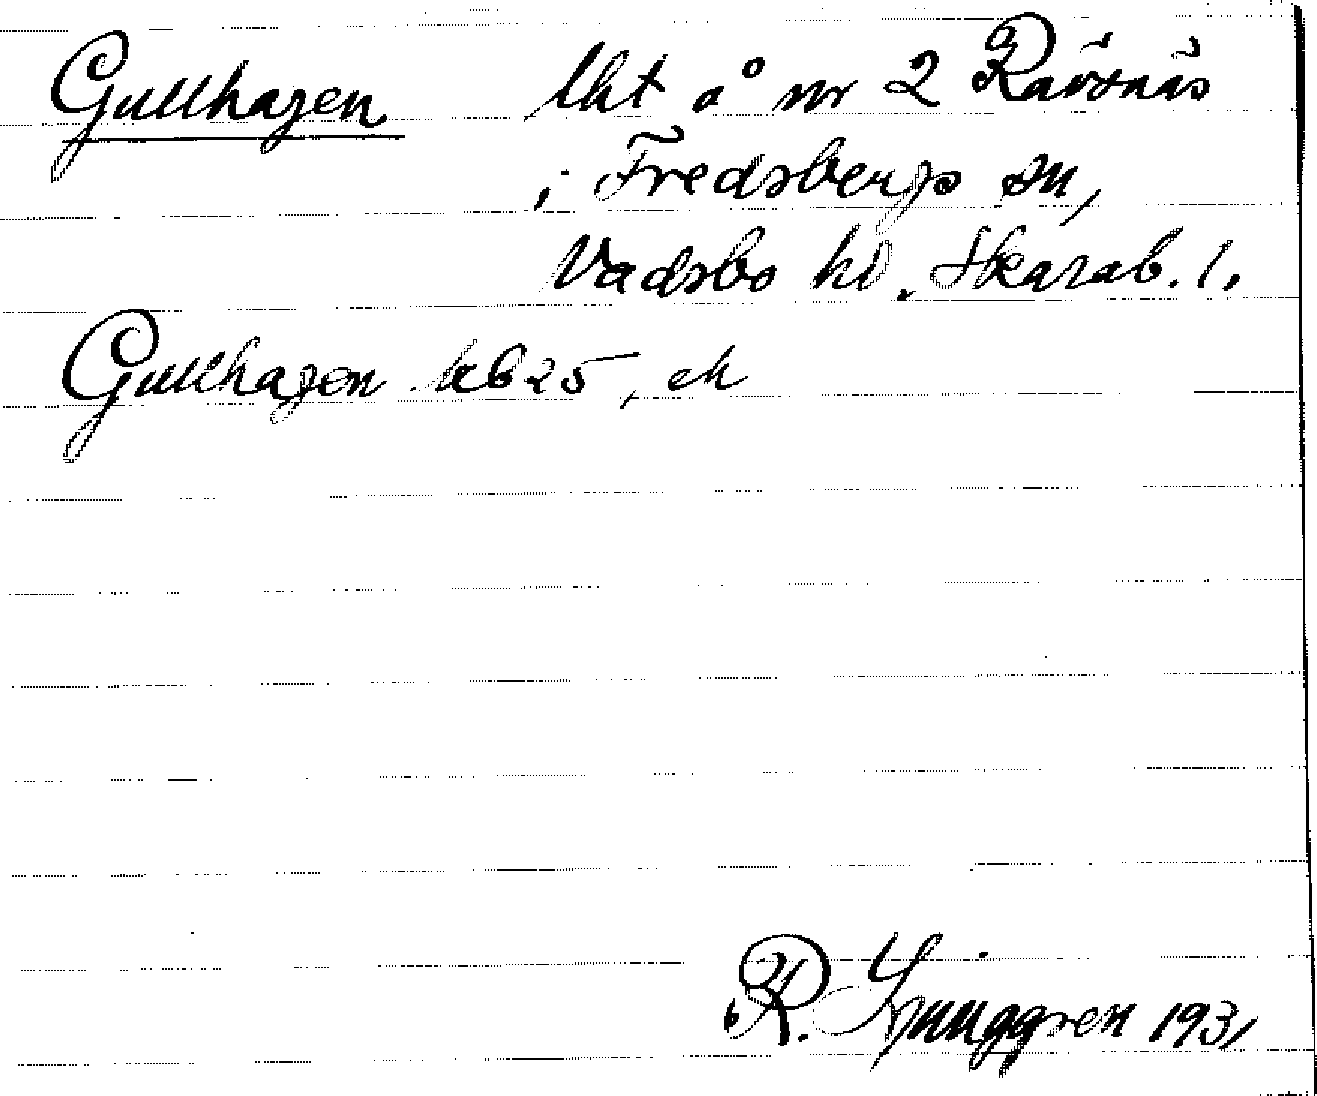 Gullhagen lht å nr 2 Rävsnäs
i Fredsbergs sn,
Vadsbo hd. Skarab. l.
Gullhagen kb 25, ek
R. Ljunggren 1931